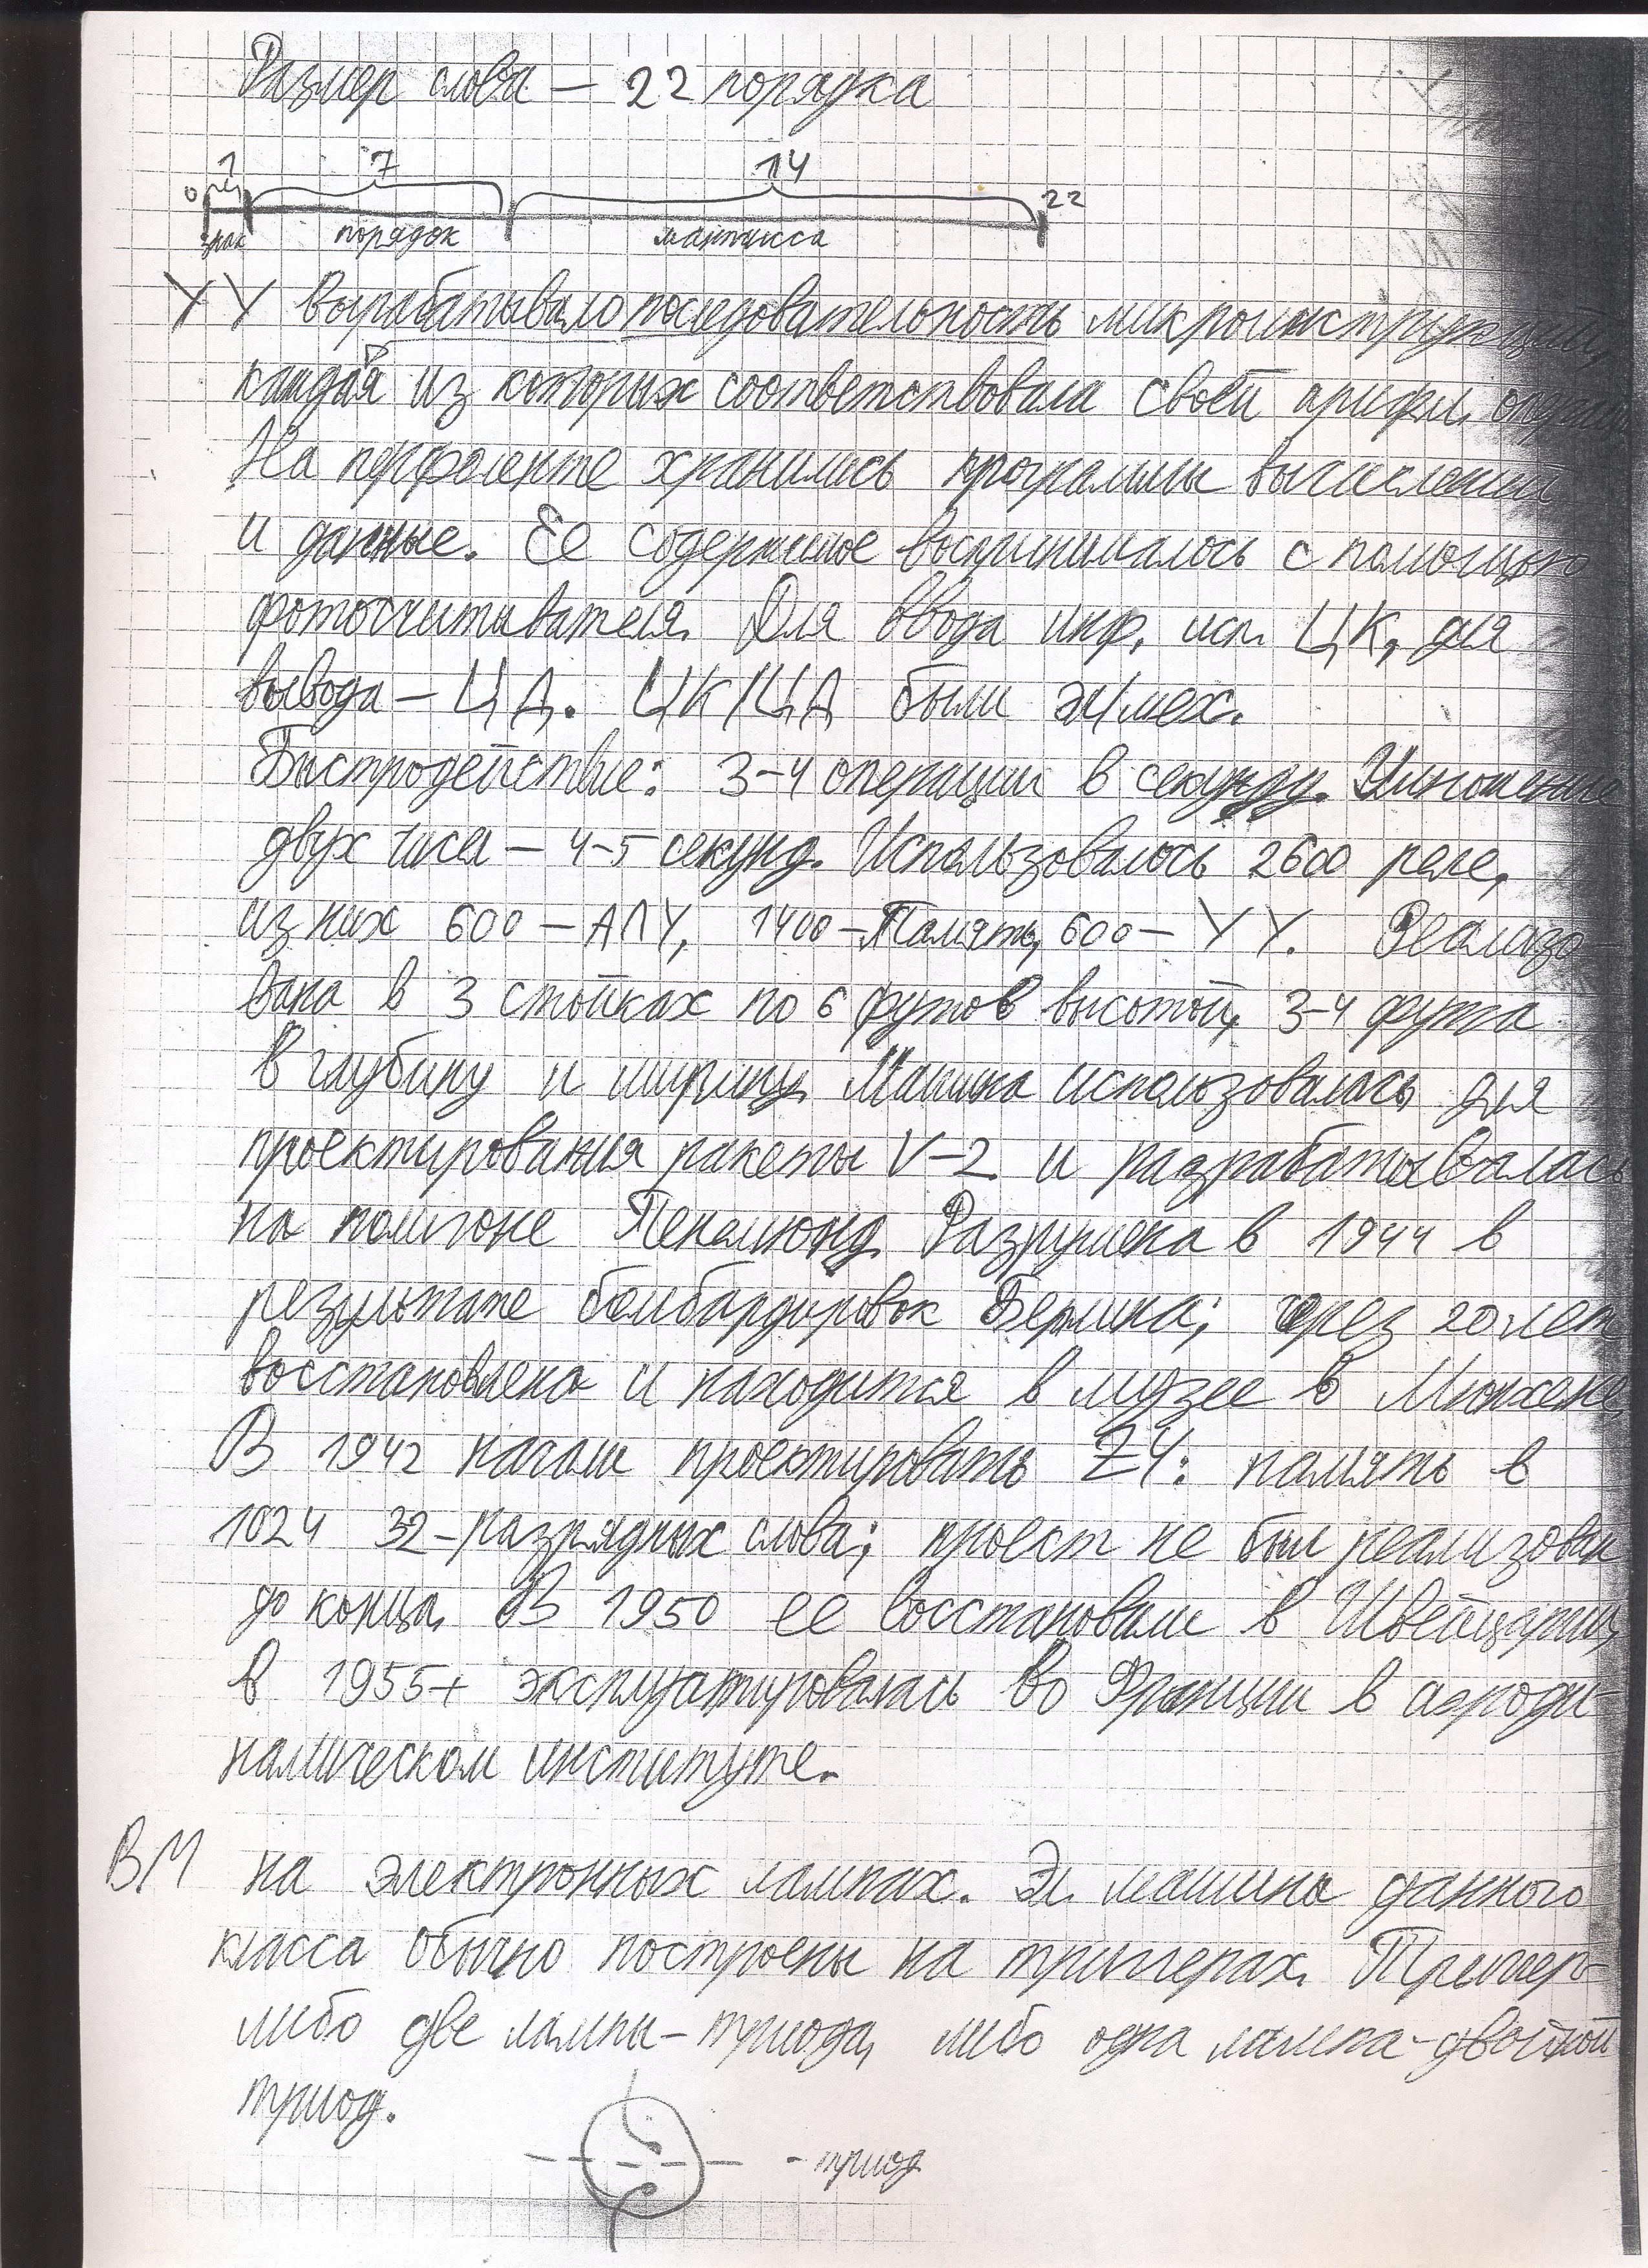 Размер слова – 22 порядка
1 7 14
0 22
знак порядок мантисса
УУ вырабатывало последовательность микроинструкций,
каждая из которых соответствовала своей арифм.
На перфоленте хранились программы вычислений
и данные. Ее содержимое воспринималось с помощью
фотосчитывателя. Для ввода инф. исп. ЦК, для
вывода – ЦД. ЦК/ЦД были эл/мех.
Быстродействие: 3-4 операции в секунду. Умножение
двух чисел – 4-5 секунд. Использовалось 2600 реле,
из них 600 – АЛУ, 1400 – Память, 600 – УУ. Реализо-
вана в 3 стойках по 6 футов высотой, 3-4 фута
в глубину и ширину. Машина использовалась для
проектирования ракеты V-2 и разрабатывалась
на полигоне Пенемюнд. Разрушена в 1944 в
результате бомбардировок Берлина; через 20 лет
восстановлена и находится в музее в Мюнхене.
В 1942 начали проектировать Z4: память в
1024 32-разрядных слова; проект не был реализован
до конца. В 1950 ее восстановили в Швейцарии,
в 1955+ эксплуатировалась во Франции в аэроди-
намическом институте.
ВМ на электронных лампах. Эл. машины данного
класса обычно построены на триггерах. Триггер-
либо две лампы-триода, либо одна лампа-двойной
триод.
- триод